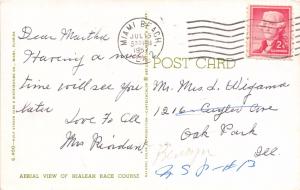 Dear Martha
Having a nice
time will see you
later Love To All
Mrs Riordan
AERIAL VIEW OF HIALEAH RACE COURSE
MIAMI BEACH,
JUL
POST CARD
2¢
Mr. Mrs L. Wigama
1216 Ave
Oak Park
Ill.